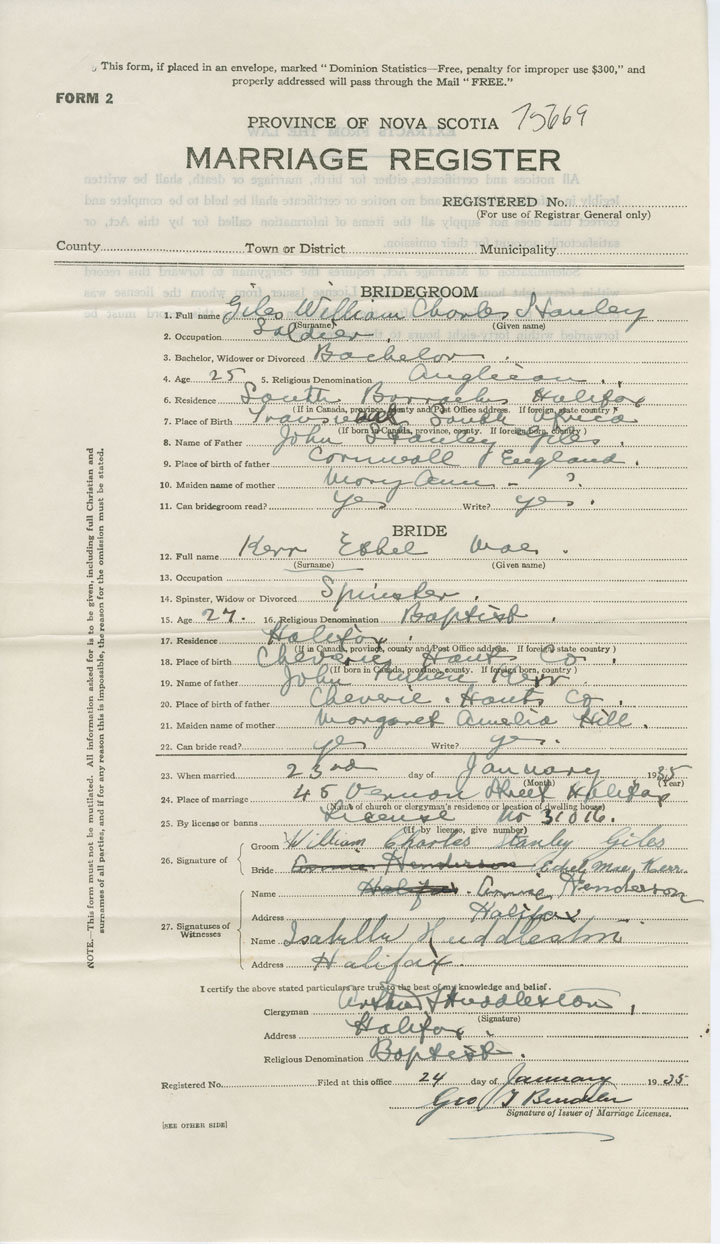 This form, if placed in an envelope, marked "Dominion Statistics—Free, penalty for improper use $300," and
properly addressed will pass through the Mail "FREE."
FORM 2
PROVINCE OF NOVA SCOTIA 75669
MARRIAGE REGISTER
REGISTERED No.
(For use of Registrar General only)
County Town or District Municipality
BRIDEGROOM
1. Full name Giles William Charles Stanley
(Surname) (Given name)
2. Occupation Soldier.
3. Bachelor, Widower or Divorced Bachelor.
4. Age 25 5. Religious Denomination Anglican.
6. Residence South Barracks Halifax
(If in Canada, province, county and Post Office address. If foreign, state country)
7. Place of Birth South Africa
(If born in Canada, province, county. If foreign born, country)
8. Name of Father John Stanley Giles.
9. Place of birth of father Cornwall England.
10. Maiden name of mother Mary Ann - ?.
11. Can bridegroom read? yes Write? yes.
BRIDE
12. Full name Kerr Ethel Mae.
(Surname) (Given name)
13. Occupation
14. Spinster, Widow or Divorced Spinster.
15. Age 27. 16. Religious Denomination Baptist.
17. Residence Halifax.
(If in Canada, province, county and Post Office address. If foreign state country)
18. Place of birth Cheverie Hants Co.
(If born in Canada, province, county. If foreign born, country)
19. Name of father John Kerr
20. Place of birth of father Cheverie. Hants Co.
21. Maiden name of mother Margaret Amelia Hill.
22. Can bride read? yes Write? yes.
23. When married 23rd day of January 1935
(Month) (Year)
24. Place of marriage 45 Vernon Street Halifax
(Name of church or clergyman's residence or location of dwelling house)
25. By license or banns License No 31016.
(If by license, give number)
26. Signature of Groom William Charles Stanley Giles
Bride Henderson Ethel Mae Kerr.
27. Signatures of Witnesses Name Halifax. Annie Henderson
Address Halifax
Name Isabella Huddleston
Address Halifax.
I certify the above stated particulars are true to the best of my knowledge and belief.
Clergyman Arthur Huddleston,
(Signature)
Address Halifax.
Religious Denomination Baptist.
Registered No. Filed at this office 24 day of January 1935
Geo
Signature of Issuer of Marriage Licenses.
[SEE OTHER SIDE]
NOTE.—This form must not be mutilated. All information asked for is to be given, including full Christian and
surnames of all parties, and if for any reason this is impossible, the reason for the omission must be stated.